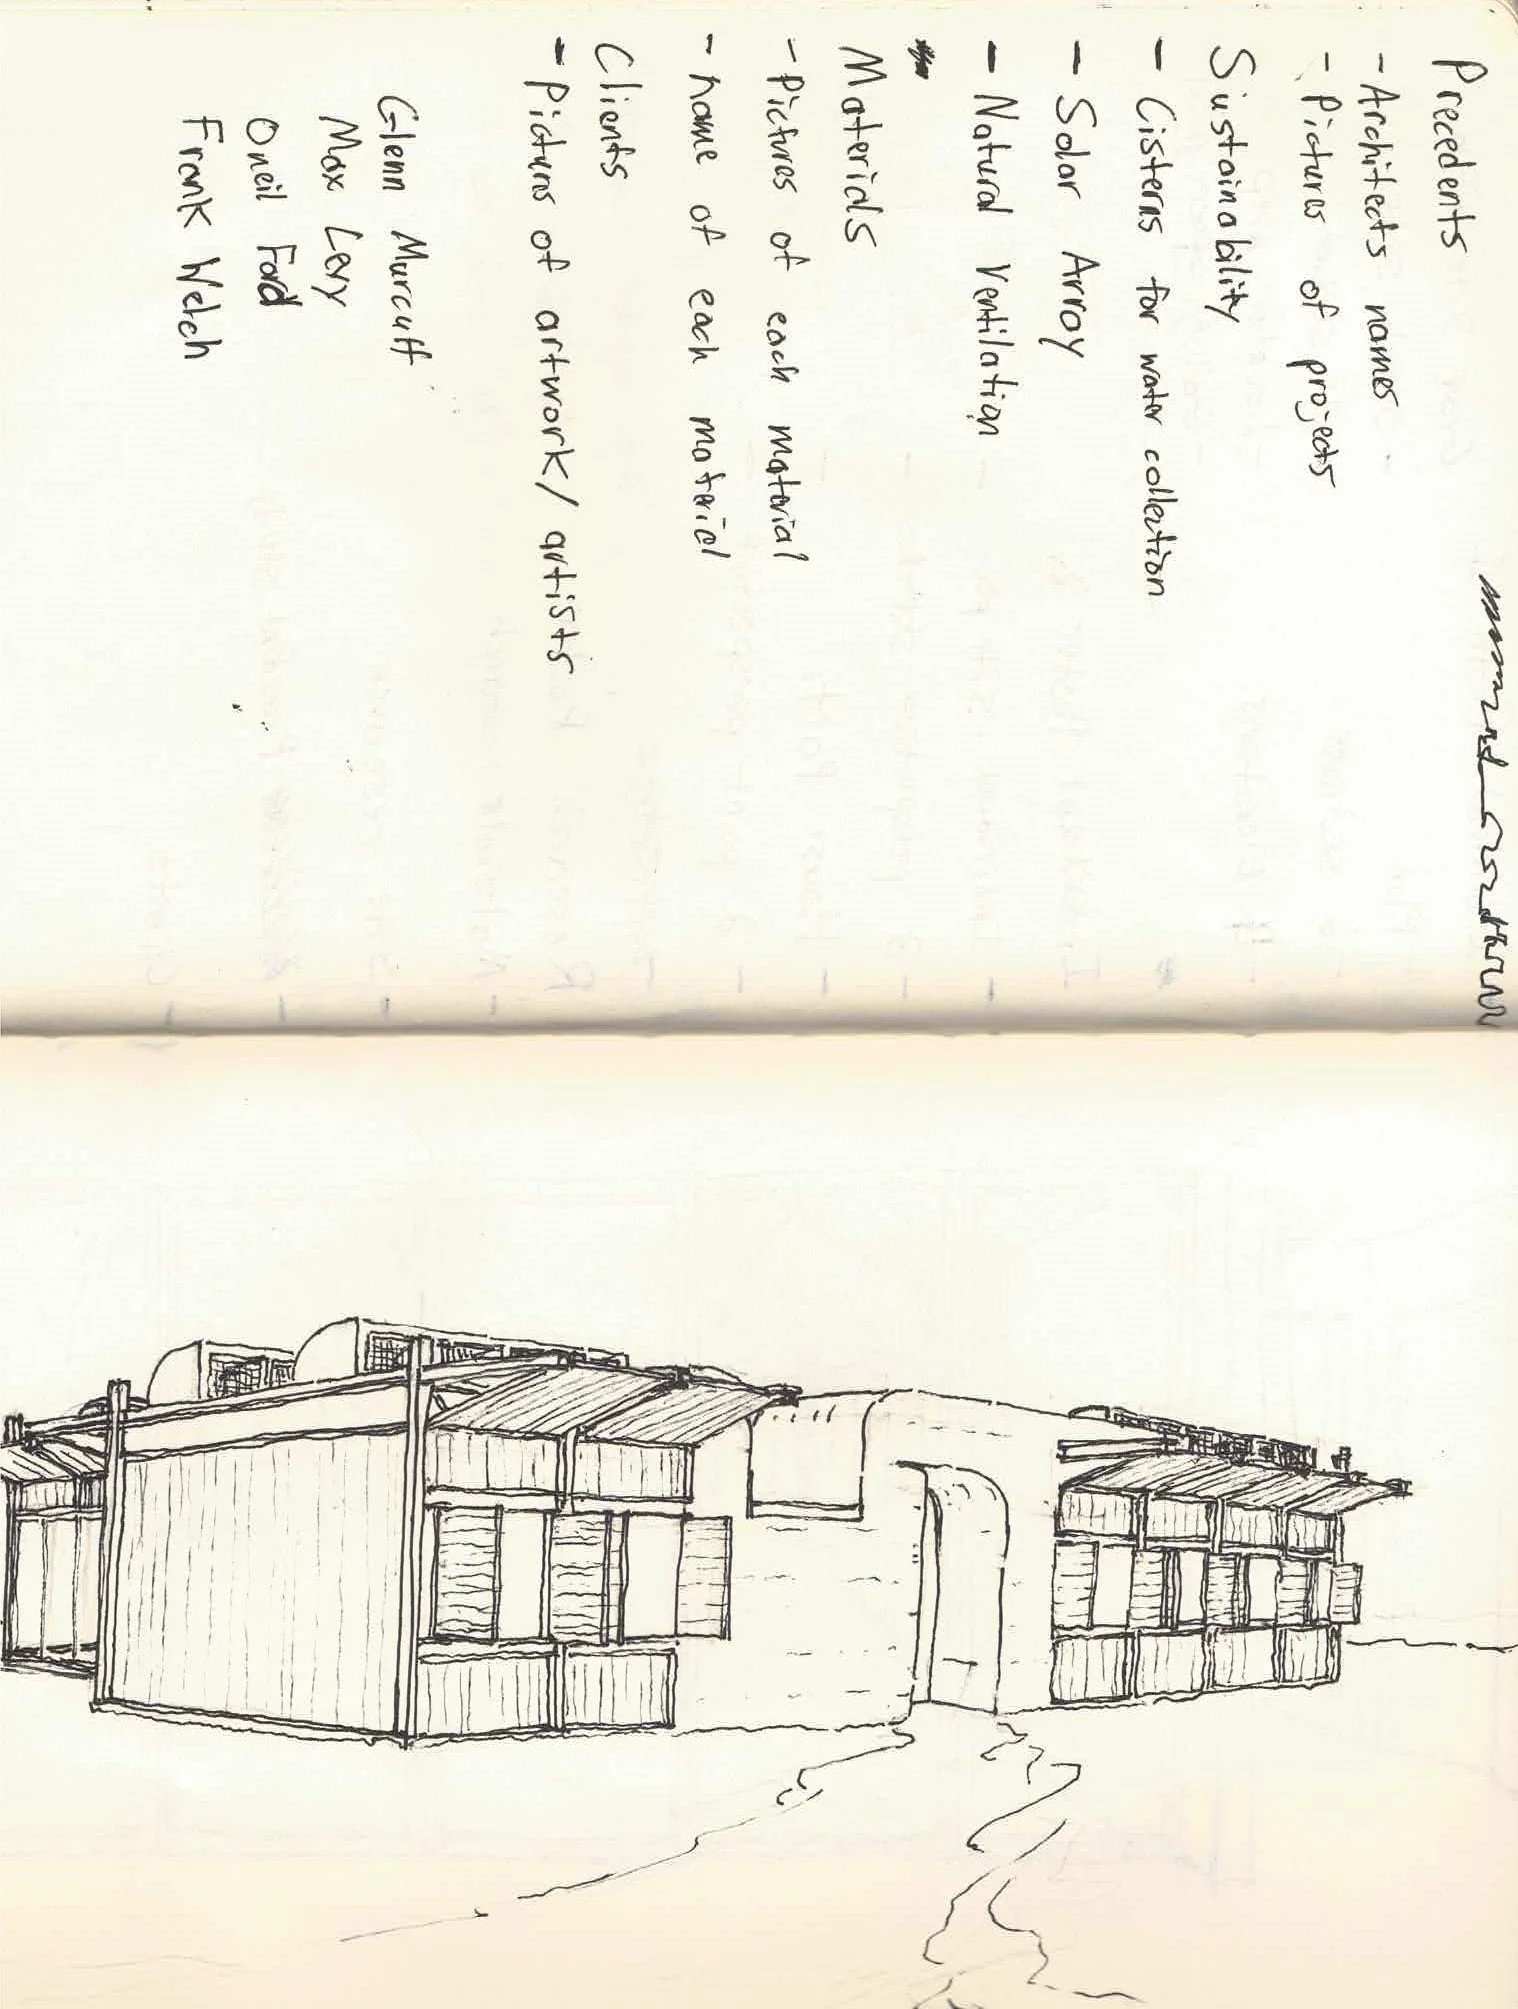 Precedents
- Architects names
- Pictures of projects
Sustainability
- Cisterns for water collection
- Solar Array
- Natural Ventilation
Materials
- Pictures of each material
- name of each material
Clients
- Pictures of artwork/artists
Glenn Murcutt
Max Levy
Oneil Ford
Frank Welch